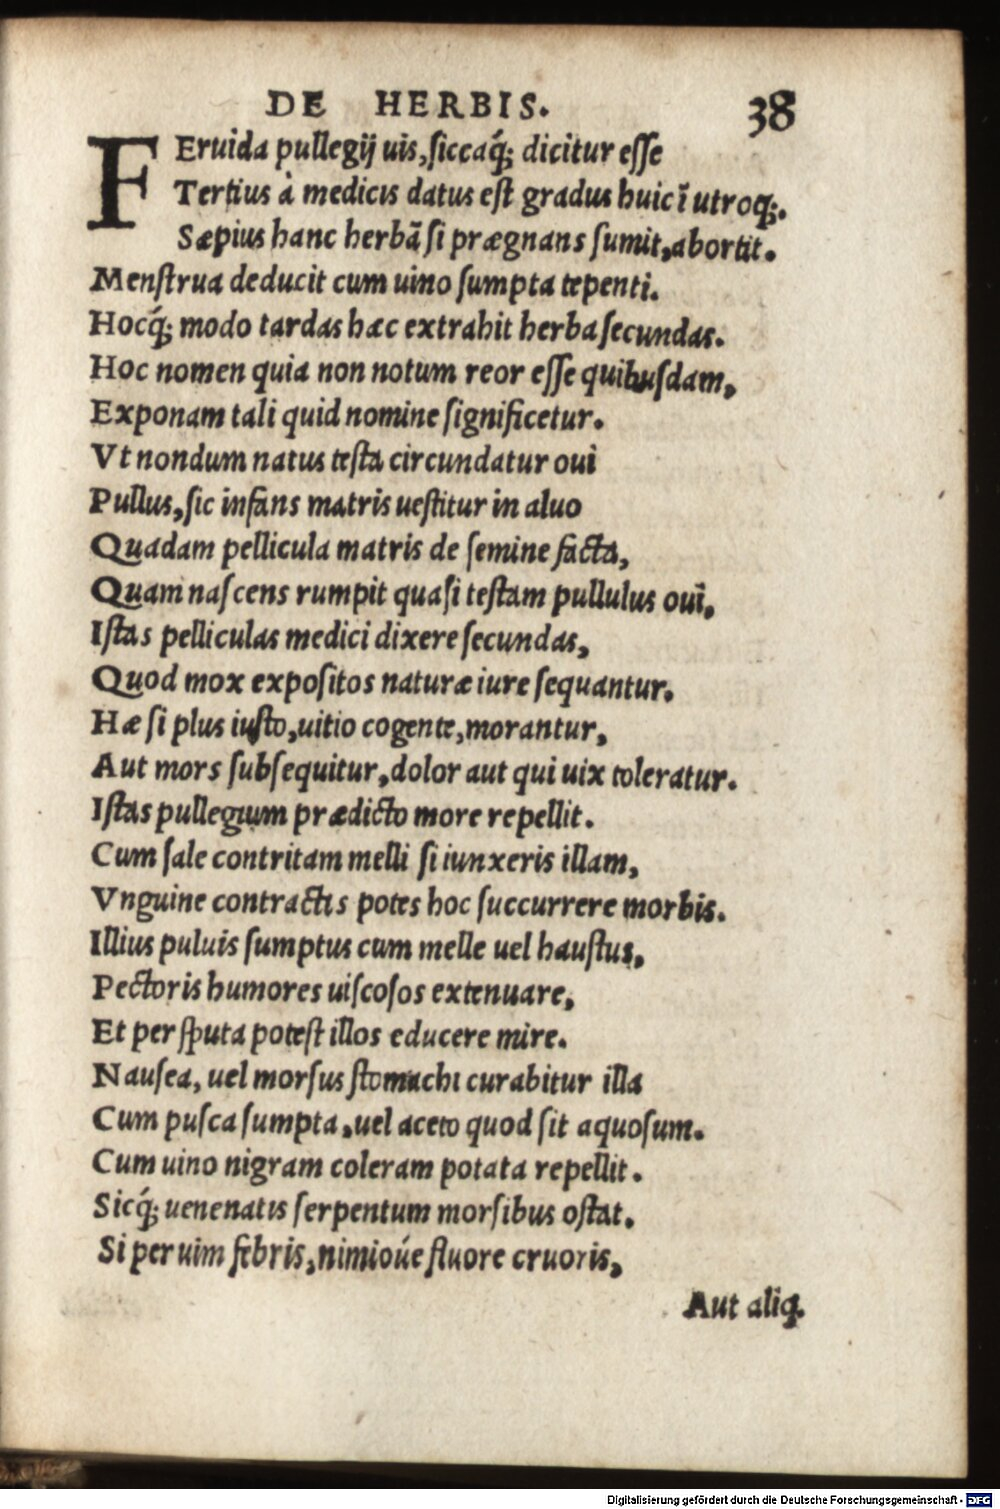 DE HERBIS. 38
FEruida pullegij uis, siccaq́; dicitur esse
Tertius à medicis datus est gradus huic ĩ utroq;.
Sæpius hanc herbã si prægnans sumit, abortit.
Menstrua deducit cum uino sumpta tepenti.
Hocq́; modo tardas hæc extrahit herba secundas.
Hoc nomen quia non notum reor esse quibusdam,
Exponam tali quid nomine significetur.
Vt nondum natus testa circundatur oui
Pullus, sic infans matris uestitur in aluo
Quadam pellicula matris de semine facta,
Quam nascens rumpit quasi testam pullulus oui,
Istas pelliculas medici dixere secundas,
Quod mox expositos naturæ iure sequantur.
Hæ si plus iusto, uitio cogente, morantur,
Aut mors subsequitur, dolor aut qui uix toleratur.
Istas pullegium prædicto more repellit.
Cum sale contritam melli si iunxeris illam,
Vnguine contractis potes hoc succurrere morbis.
Illius puluis sumptus cum melle uel haustus,
Pectoris humores uiscosos extenuare,
Et per sputa potest illos educere mire.
Nausea, uel morsus stomachi curabitur illa
Cum pusca sumpta, uel aceto quod sit aquosum.
Cum uino nigram coleram potata repellit.
Sicq́; uenenatis serpentum morsibus ostat.
Si per uim febris, nimioúe fluore cruoris,
Aut aliq.
Digitalisierung gefördert durch die Deutsche Forschungsgemeinschaft - DFG